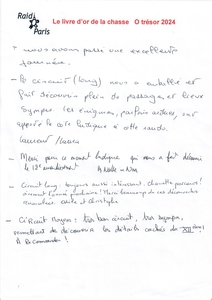 Raid Paris
Le livre d'or de la chasse O trésor 2024
+ nous avons passé une excellente
journée.
- Le circuit (long) nous a emballé et
fait découvrir plein de passages et lieux
sympas. Les énigmes, parfois ardues, ont
apporté le côté ludique à cette rando.
Laurent / Laura
- Merci pour ce moment ludique qui nous a fait découvrir
le 12e arrondissement
- Circuit long : toujours aussi intéressant, chouette parcours !
à l'année prochaine ! Merci beaucoup de ces découvertes
et Christophe
- Circuit Moyen : très bon circuit, très sympa,
permettant de découvrir les détails cachés du
A Recommander !